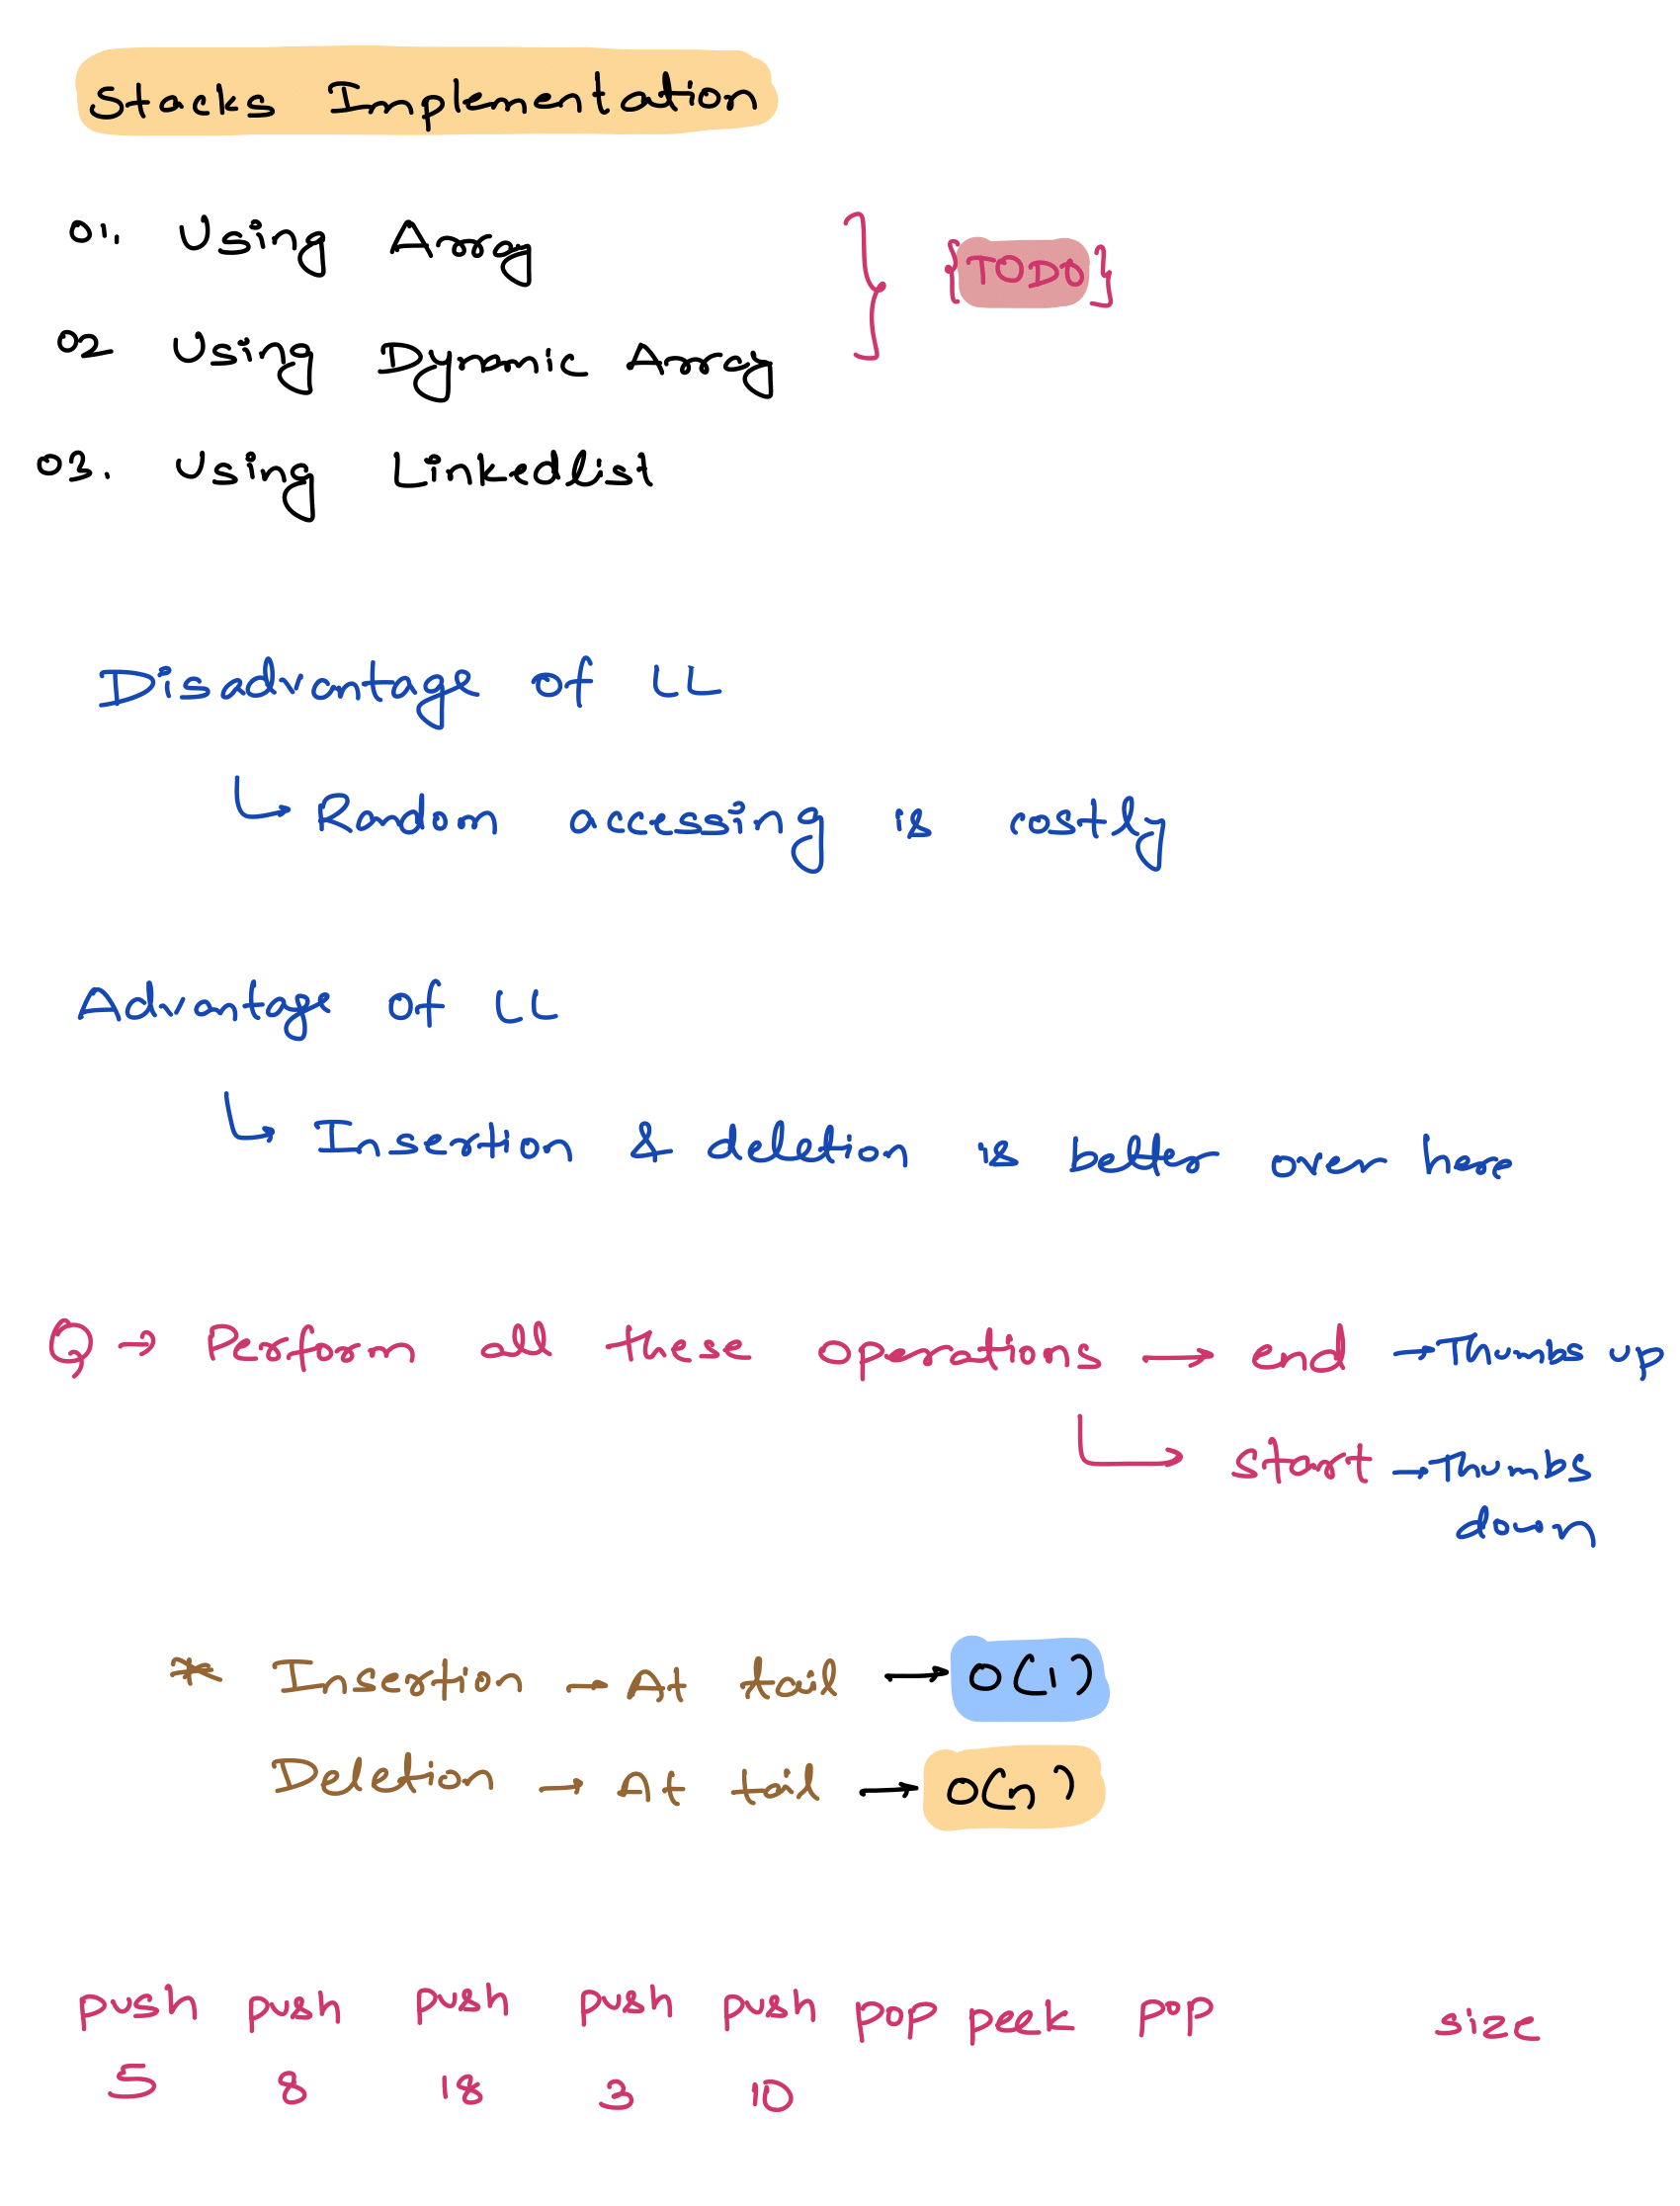 Stacks Implementation
01. Using Array
{TODO}
02 Using Dynamic Array
03. Using Linkedlist
Disadvantage of LL
↳ Random accessing is costly
Advantage of LL
↳ Insertion & deletion is better over here
Q → Perform all these operations → end → Thumbs up
↳ start → Thumbs
down
* Insertion → At tail → O(1)
Deletion → At tail → O(n)
push push push push push pop peek pop size
5 8 18 3 10